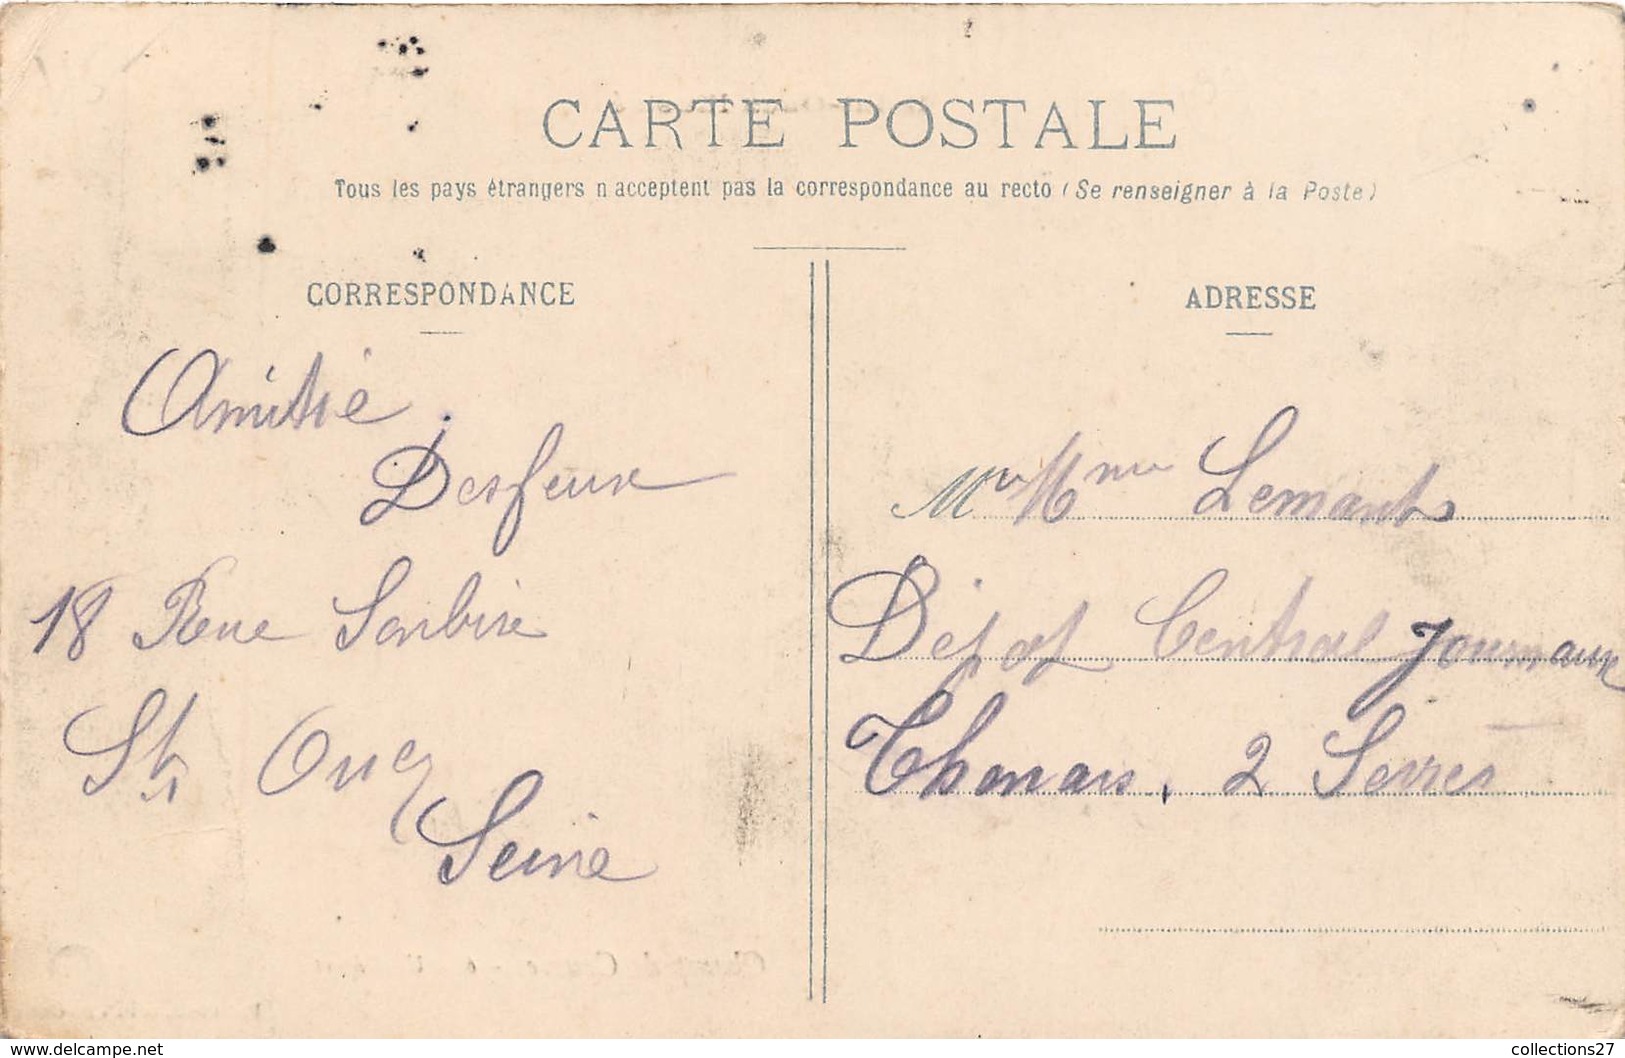 CARTE POSTALE
Tous les pays étrangers n acceptent pas la correspondance au recto (Se renseigner à la Poste)
CORRESPONDANCE
ADRESSE
Amitié
Desfeux
18 Rue
St Ouen
Seine
Mr Mme
Dépot Central Journaux
Thouars, 2 Sevres
www.delcampe.net
collections27